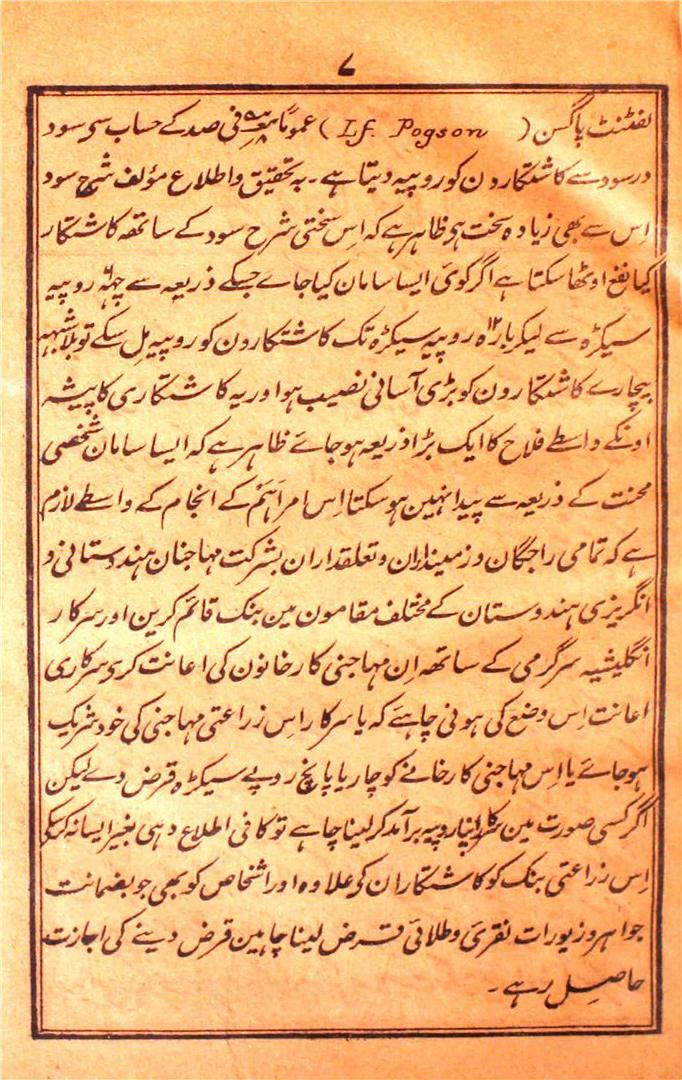 ۷
لفٹنٹ پاگسن ( Lf. Pogson ) عموماً فی صد کے حساب سی سود
درسود سے کاشتکارون کو روپیہ دیتا ہے۔ بہ تحقیق و اطلاع مؤلف شرح سود
اِس سے بھی زیادہ سخت ہو ظاہر ہے کہ اِس سختی شرح سود کے ساتھ کاشتکار
کیا نفع اوٹھا سکتا ہے اگر کوئی ایسا سامان کیا جاے جسکے ذریعہ سے چھہ۶ روپیہ
سیکڑہ سے لیکر بارہ۱۲ روپیہ سیکڑہ تک کاشتکارون کو روپیہ مِل سکے تو بلا شبہہ
بیچارے کاشتکارون کو بڑی آسانی نصیب ہو اور یہ کاشتکاری کا پیشہ
اونکے واسطے فلاح کا ایک بڑا ذریعہ ہوجائے ظاہر ہے کہ ایسا سامان شخصی
محنت کے ذریعہ سے پیدا نہین ہو سکتا اِس امر اَہَم کے انجام کے واسطے لازم
ہے کہ تمامی راجگان و زمینداران و تعلقداران بشرکت مہاجنان ہندوستانی و
انگریزی ہندوستان کے مختلف مقامون مین بنک قائم کرین اور سرکار
انگلیشیہ سرگرمی کے ساتھ اِن مہاجنی کارخانون کی اعانت کری سرکاری
اعانت اِس وضع کی ہونی چاہئے کہ یا سرکار اِس زراعتی مہاجنی کی خود شریک
ہوجائے یا اِس مہاجنی کارخانے کو چار یا پانچ روپے سیکڑہ قرض دے لیکن
اگر کسی صورت مین سرکار اپنا روپیہ برآمد کرلینا چاہے تو کافی اطلاع دہی بغیر ایسا نہ کرسکے
اِس زراعتی بنک کو کاشتکاران کے علاوہ اور اشخاص کو بھی جو بضمانت
جواہر و زیورات نقرئی و طلائی قرض لینا چاہین قرض دینے کی اجازت
حاصِل رہے۔